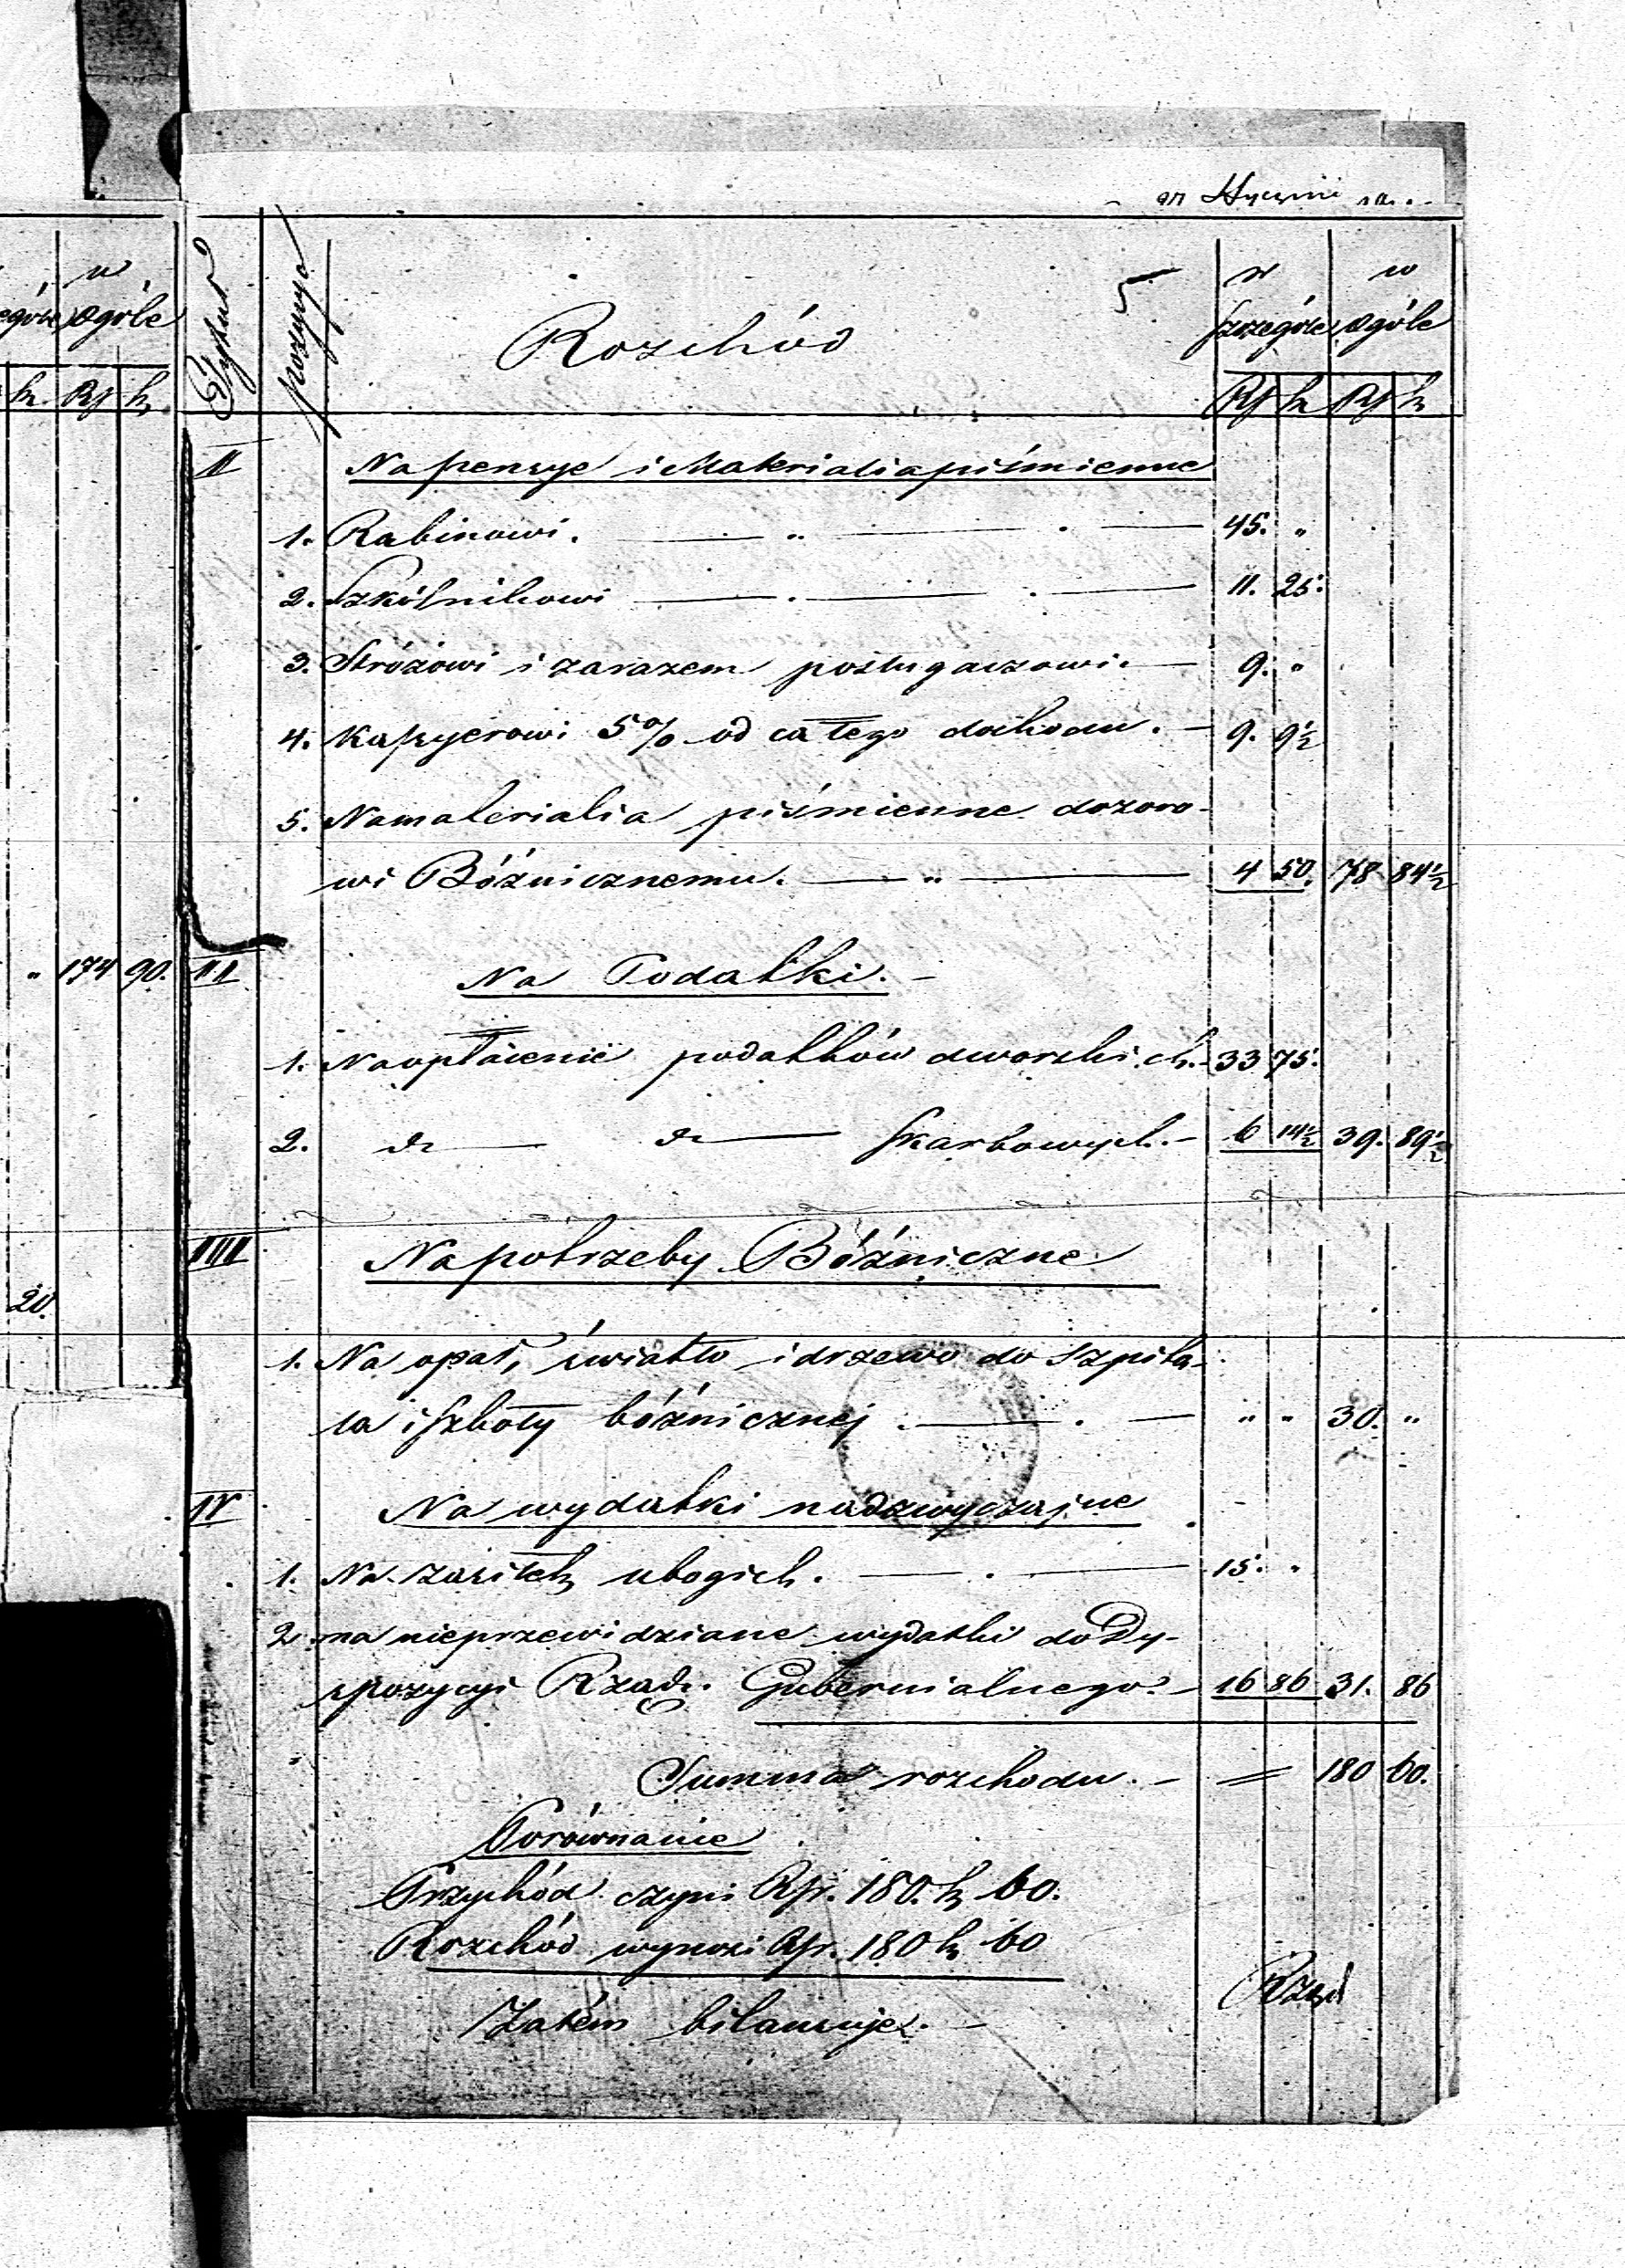 w w w
ogóle Tytuł pozycya Rozchód 5 szczególe ogóle
k. Rs k. Rs k Rs k
II Na pensye i Materialia piśmienne
1. Rabinowi. — „ — . — 45. „
2. Szkólnikowi — . — . — 11. 25.
3. Stróżowi i zarazem posługaczowi. — 9. „
4. Kassyerowi 5% od całego dochodu. — 9. 9½
5. Na materialia piśmienne dozoro-
wi Bóźnicznemu. — „ — 4 50. 78 84½
„ 174 90. III Na Podatki. —
1. Na opłacenie podatków dworskich. - 33 75.
2. do — do — skarbowych. - 6 14½ 39. 89½
IIII Na potrzeby Bóźniczne
20.
1. Na opał, światło i drzewo do szpita-
la i szkoły bóźnicznej . — . — „ „ 30. „
IV Na wydatki nadzwyczajne
1. Na zasiłek ubogich. — . — 15. „
2. na nieprzewidziane wydatki do Dy-
spozycyi Rządu Gubernialnego. - 16 86 31. 86
Summa rozchodu. - = 180 60.
Porównanie
Przychód czyni Rs. 180. k 60.
Rozchód wynosi Rs. 180 k 60
Rząd
Zatém bilansuje. —